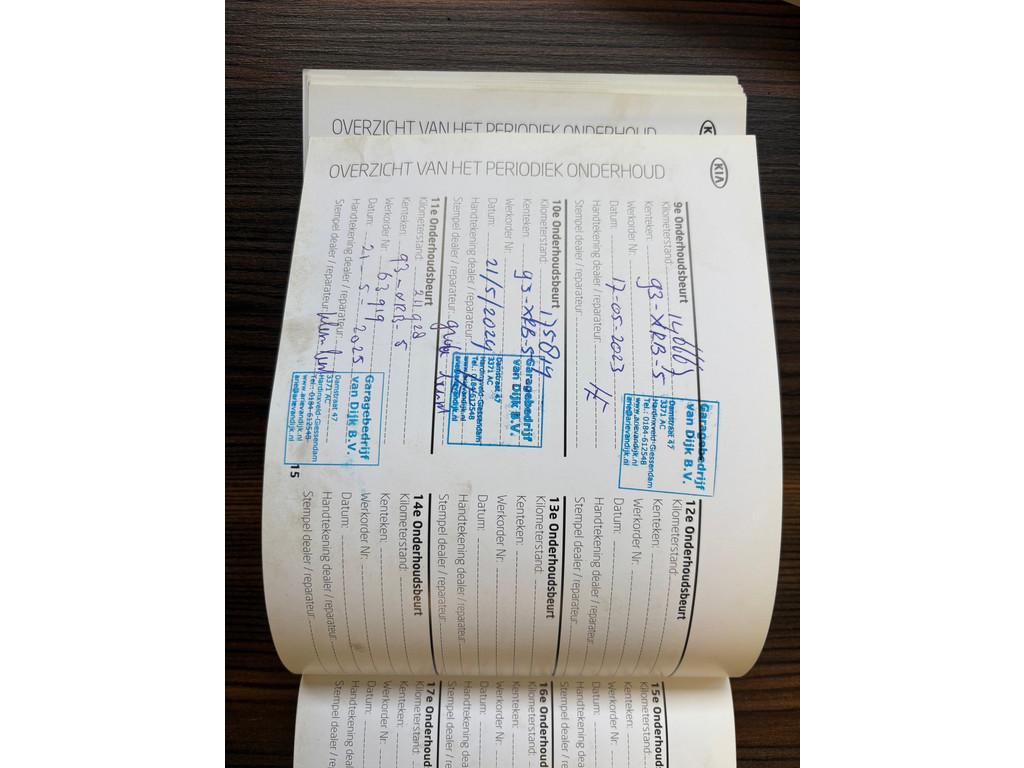 OVERZICHT VAN HET PERIODIEK ONDERHOUD
KIA
OVERZICHT VAN HET PERIODIEK ONDERHOUD
9e Onderhoudsbeurt
Kilometerstand:
Kenteken: 93-XRB-5
Werkorder Nr:
Datum: 17-05-2023
Handtekening dealer / reparateur:
Stempel dealer / reparateur:
Garagebedrijf
van Dijk B.V.
Damstraat 47
3371 AC
Hardinxveld-Giessendam
Tel.: 0184-612548
www.arievandijk.nl
arie@arievandijk.nl
10e Onderhoudsbeurt
Kilometerstand: 175819
Kenteken: 93-XRB-5
Werkorder Nr:
Datum: 21/5/2024
Handtekening dealer / reparateur:
Stempel dealer / reparateur:
Garagebedrijf
van Dijk B.V.
Damstraat 47
3371 AC
Hardinxveld-Giessendam
Tel.: 0184-612548
www.arievandijk.nl
arie@arievandijk.nl
11e Onderhoudsbeurt
Kilometerstand: 211.928
Kenteken: 93-XRB-5
Werkorder Nr: 63919
Datum: 21-5-2025
Handtekening dealer / reparateur:
Stempel dealer / reparateur:
Garagebedrijf
van Dijk B.V.
Damstraat 47
3371 AC
Hardinxveld-Giessendam
Tel.: 0184-612548
www.arievandijk.nl
arie@arievandijk.nl
15
12e Onderhoudsbeurt
Kilometerstand:
Kenteken:
Werkorder Nr:
Datum:
Handtekening dealer / reparateur:
Stempel dealer / reparateur:
13e Onderhoudsbeurt
Kilometerstand:
Kenteken:
Werkorder Nr:
Datum:
Handtekening dealer / reparateur:
Stempel dealer / reparateur:
14e Onderhoudsbeurt
Kilometerstand:
Kenteken:
Werkorder Nr:
Datum:
Handtekening dealer / reparateur:
Stempel dealer / reparateur:
15e Onderhoud
Kilometerstand:
Kenteken:
Werkorder Nr:
Datum:
Handtekening dea
Stempel dealer / r
16e Onderhoud
Kilometerstand:
Kenteken:
Werkorder Nr:
Datum:
Handtekening dea
Stempel dealer / r
17e Onderhoud
Kilometerstand:
Kenteken:
Werkorder Nr:
Datum:
Handtekening dea
Stempel dealer / r